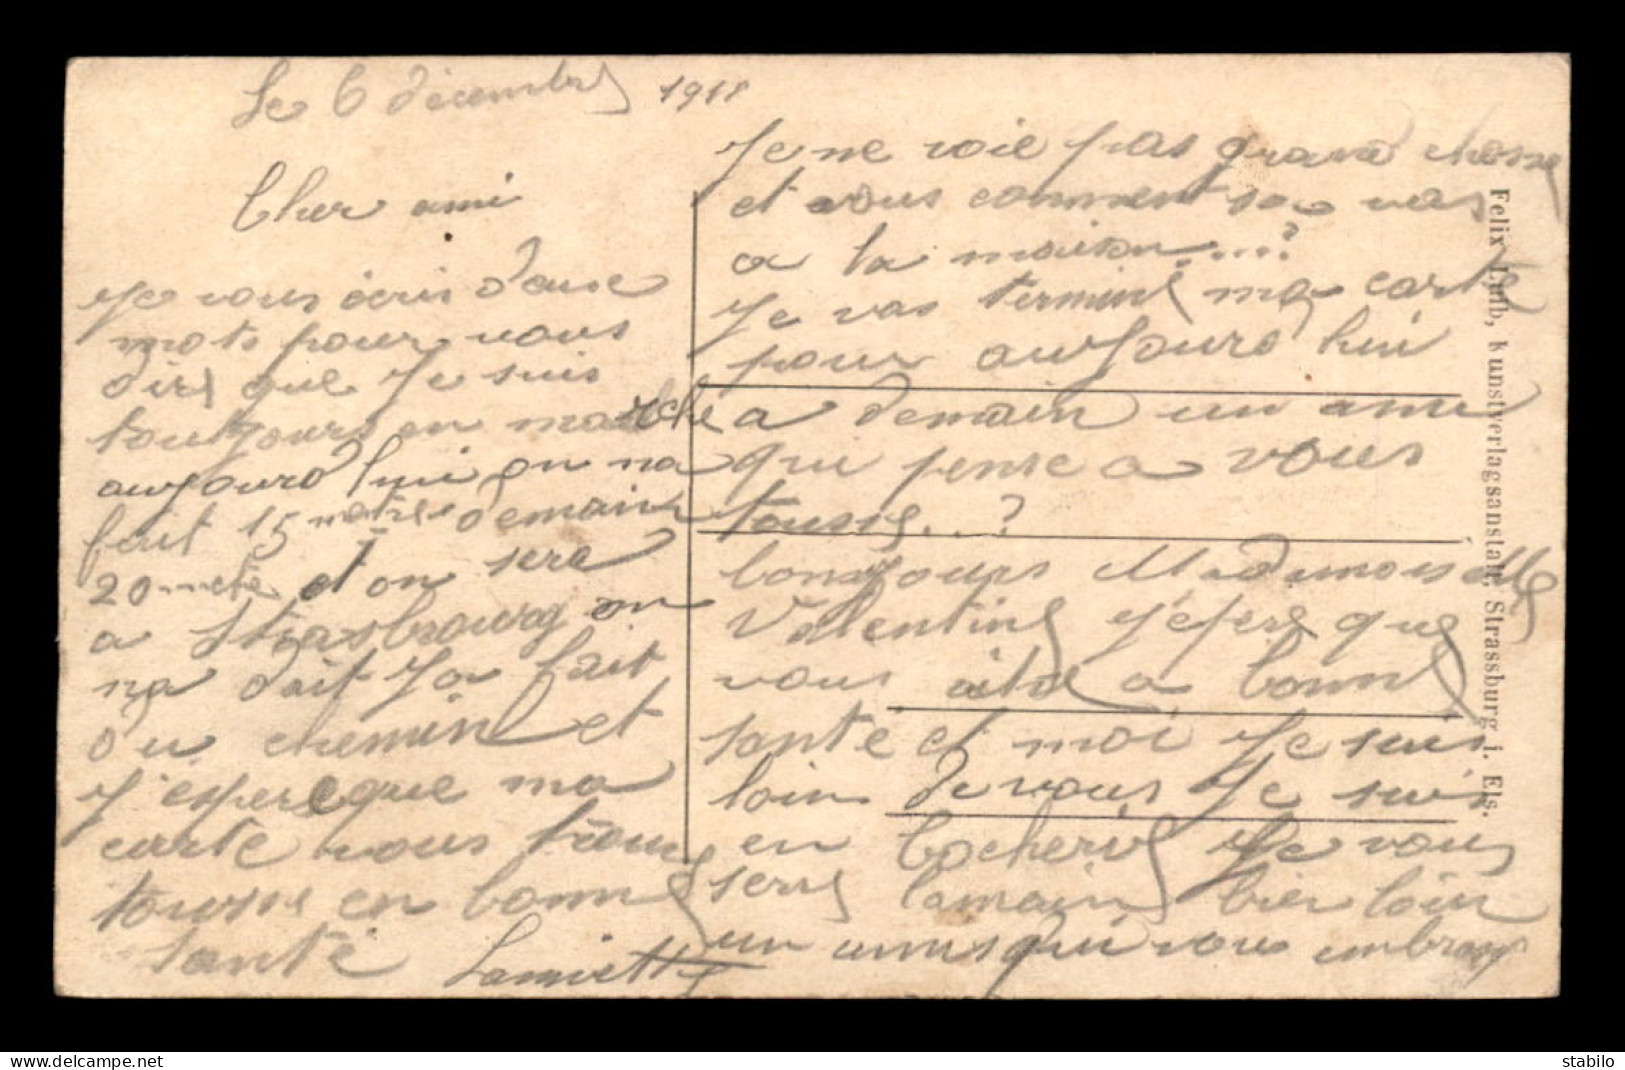 Le 6 décembre 1918
Cher ami
Je vous écris deuse
mots pour vous
dire que Je suis
toutjours en marche
aujourd'hui on na
fait 15 metres demain
20 mete et on sera
a Strasbourg on
na dait Ja fait
du chemin et
J'espere que ma
carte vous trouve
tousse en bonne
santé
Je ne voie pas grand chosse
et vous comment sa vas
a la maison....?
Je vas terminé ma carte
pour aujourd'hui
a demain un ami
qui pense a vous
tousse...?
bonsjours Madmoiselle
Valentine J'espere que
vous aite a bonne
sante et moi Je suis
loin de vous Je suis
en bocherie Je vous
serre lamain bien loin
un amis qui vous embrasse
Felix Luib, Kunstverlagsanstalt, Strassburg i. Els.
stabilo
www.delcampe.net